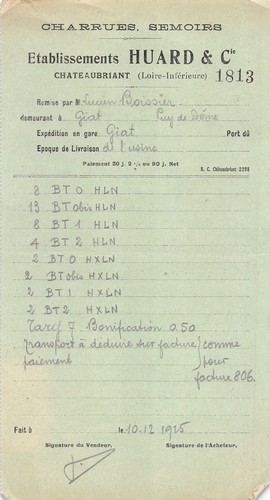 CHARRUES, SEMOIRS
Etablissements HUARD & Cie
CHATEAUBRIANT (Loire-Inférieure) 1813
Remise par M. Lucien Boissier
demeurant à Giat Puy de Dôme
Expédition en gare Giat Port dû
Epoque de Livraison de l'usine
Paiement 30 j. 2 % ou 90 j. Net
R. C. Châteaubriant 2298
8 BT 0 HLN
13 BT 0bis HLN
8 BT 1 HLN
4 BT 2 HLN
2 BT 0 HXLN
2 BT 0bis HXLN
2 BT 1 HXLN
2 BT 2 HXLN
Tarif 7 Bonification 0.50
transport à déduire sur facture) comme
paiement ) pour
facture 806.
Fait à le 10.12 1925
Signature du Vendeur. Signature de l'Acheteur.